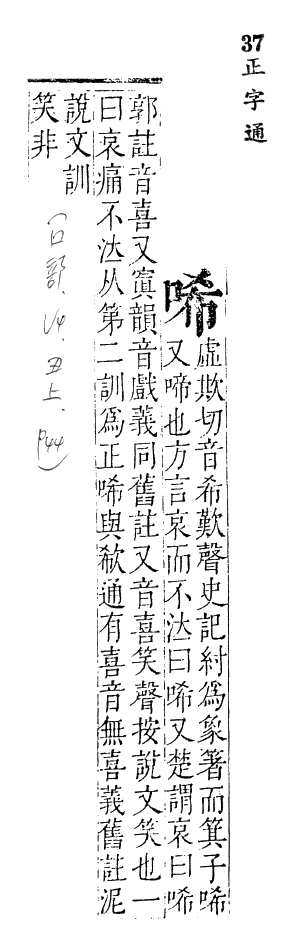 37
正字通
唏
虛欺切音希歎聲史記紂爲象箸而箕子唏
又啼也方言哀而不泣曰唏又楚謂哀曰唏
郭註音喜又寘韻音戲義同舊註又音喜笑聲按說文笑也一
曰哀痛不泣从第二訓爲正唏與欷通有喜音無喜義舊註泥
說文訓
笑非
(口部.V4.丑上.P44)